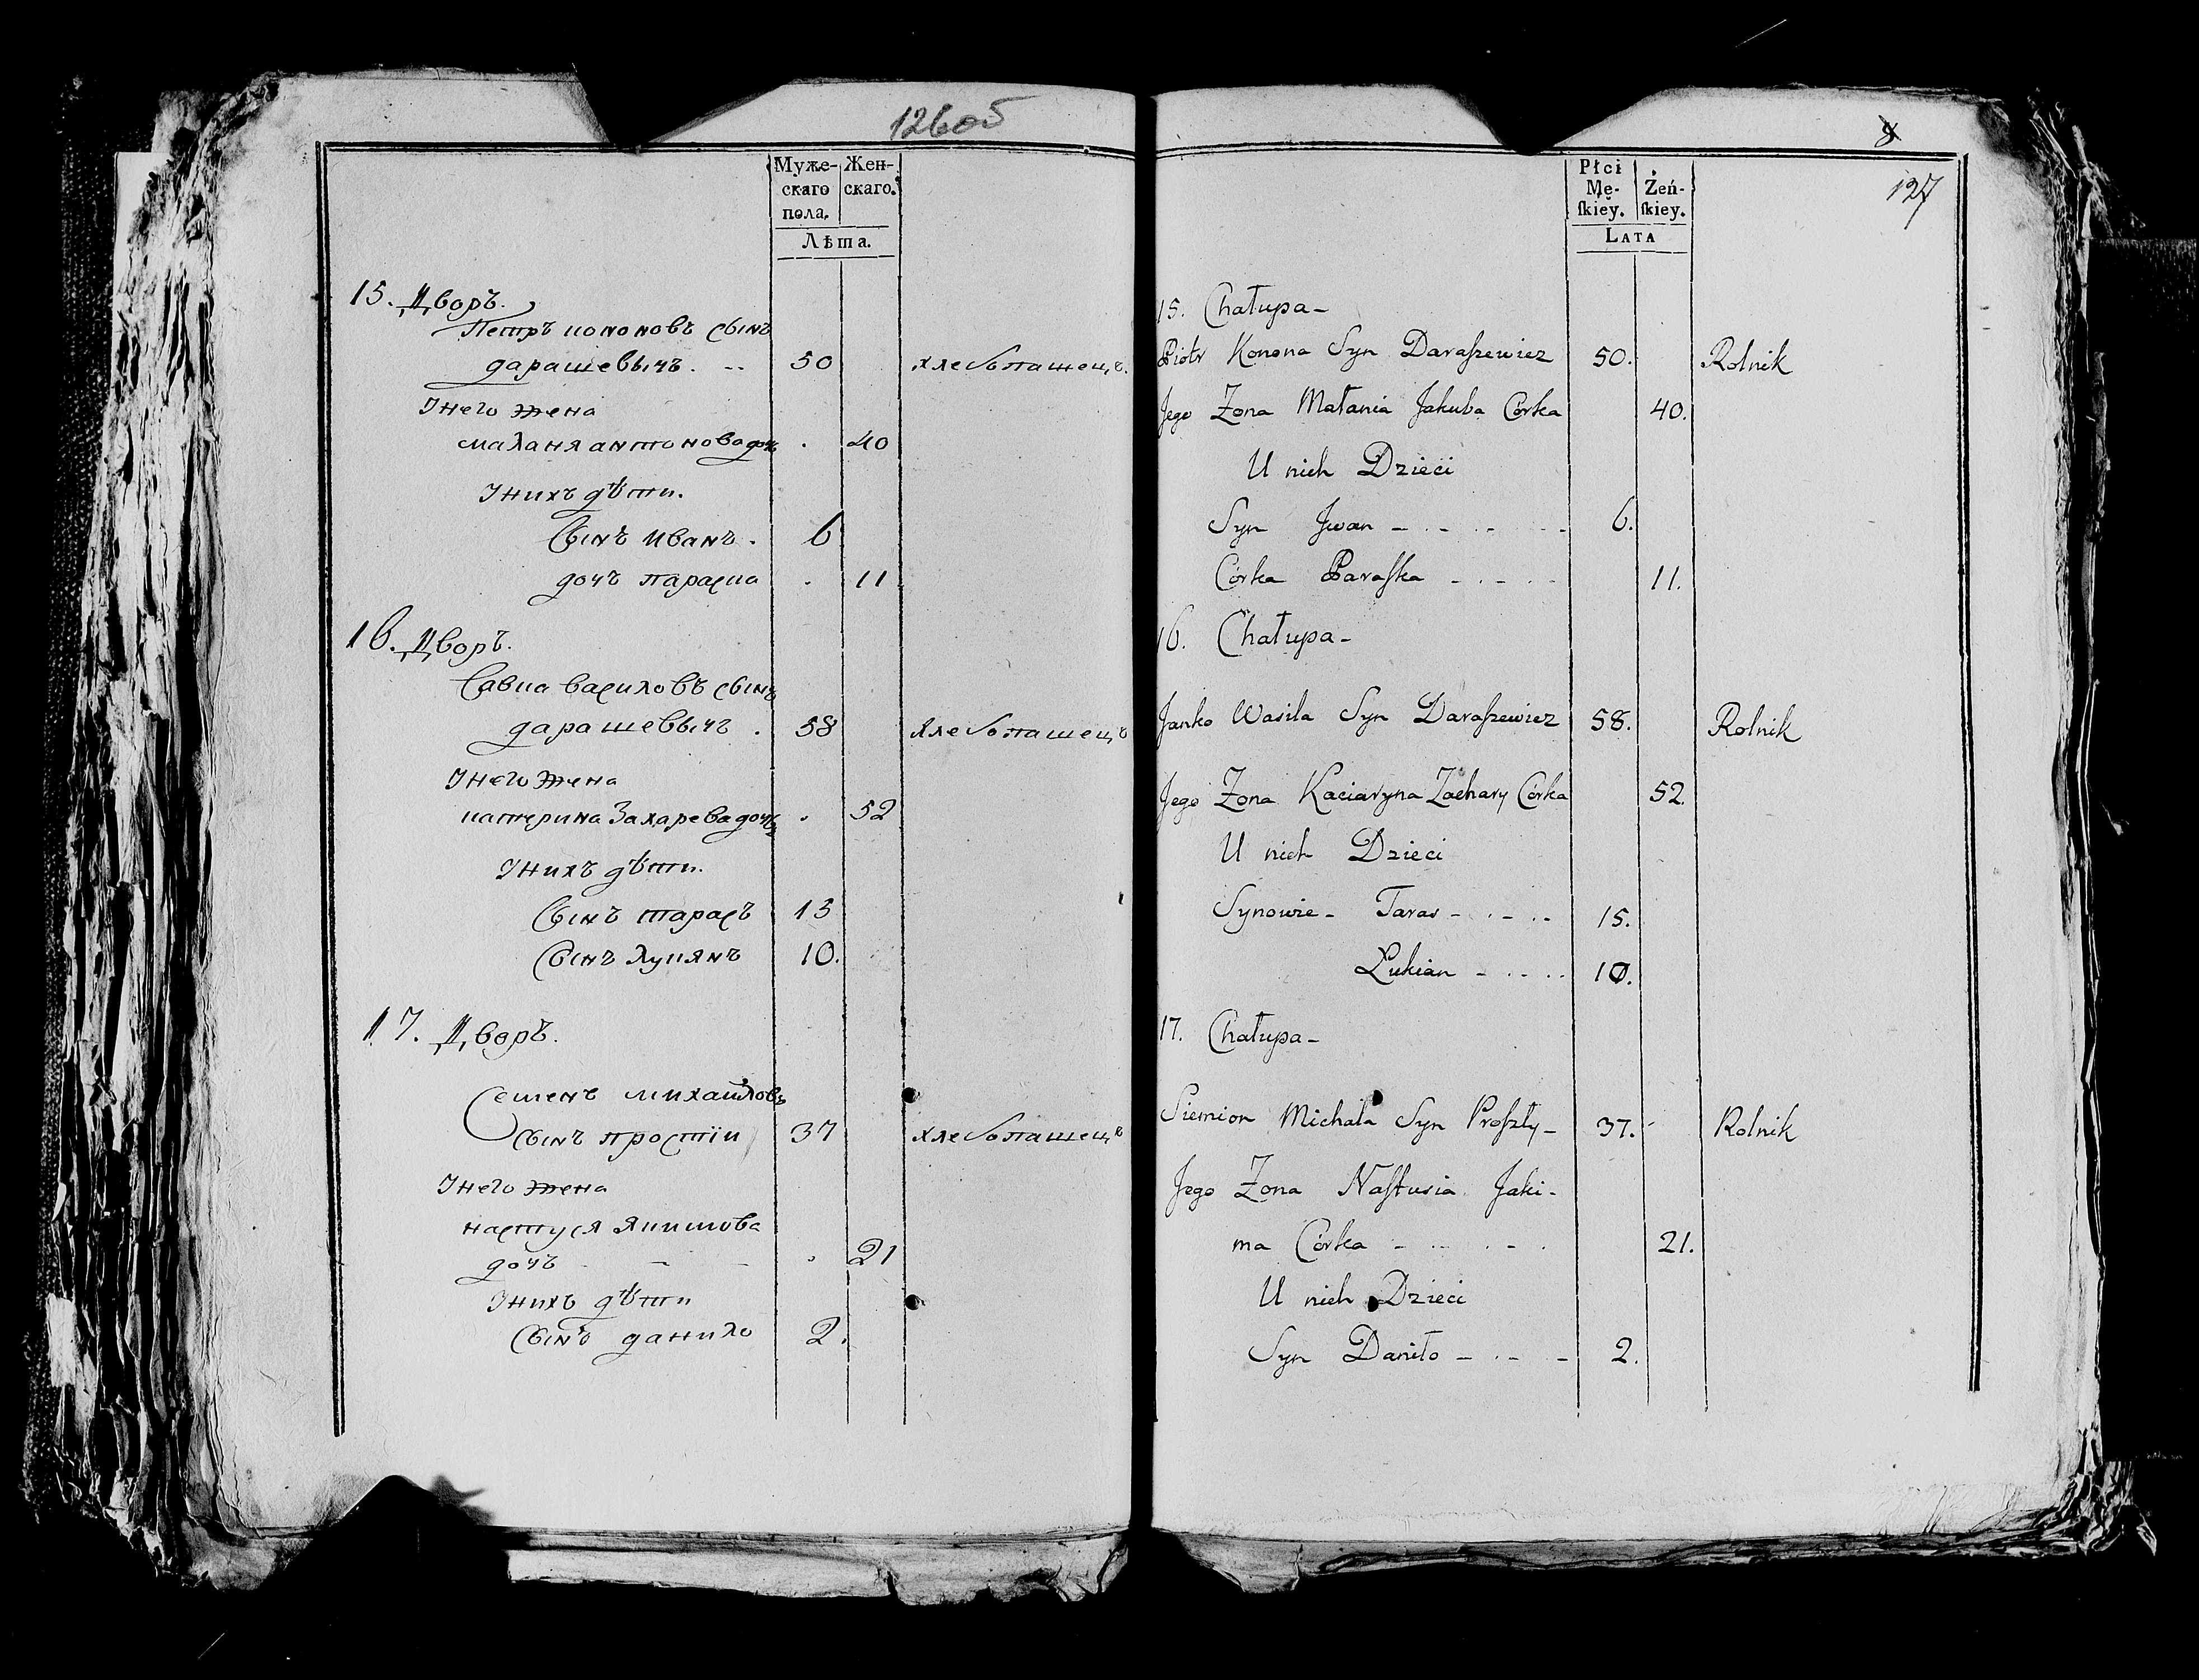 126об
Муже-
скаго
пола.
Жен-
скаго.
Лѣта.
15. Дворъ.
Петръ кононовъ сынъ
дарашевычъ. 50 хлебопашецъ.
Унего жена
маланя антонова доч . 40
Унихъ дѣти.
Сынъ иванъ. 6
дочъ параска . 11
16. Дворъ.
Савка василовъ сынъ
дарашевычъ . 58 хлебопашецъ
Унего жена
катерина Захарева дочъ . 52
Унихъ дѣти.
Сынъ тарасъ 13
Сынъ лукянъ 10.
17. Дворъ.
Семенъ михайловъ
сынъ простїи 37 хлебопашецъ
Унего жена
настуся якимова
дочъ - - - . 21
Унихъ дѣти
сынъ данило 2.
8
127
Płci
Mę-
ſkiey.
Żeń-
ſkiey.
LATA
15. Chałupa -
Piotr Konona Syn Daraſzewicz 50. Rolnik
Jego Zona Małania Jakuba Córka 40.
U nich Dzieci
Syn Jwan - - - - - 6.
Córka Paraſka - - - - 11.
16. Chałupa -
Janko Wasila Syn Daraſzewicz 58. Rolnik
Jego Zona Kaciaryna Zachary Córka 52.
U nich Dzieci
Synowie - Taras - - - 15.
Łukian - - - 10.
17. Chałupa -
Siemion Michała Syn Proſzty - 37. Rolnik
Jego Zona Naſtusia Jaki-
ma Córka - - - - 21.
U nich Dzieci
Syn Daniło - - - 2.